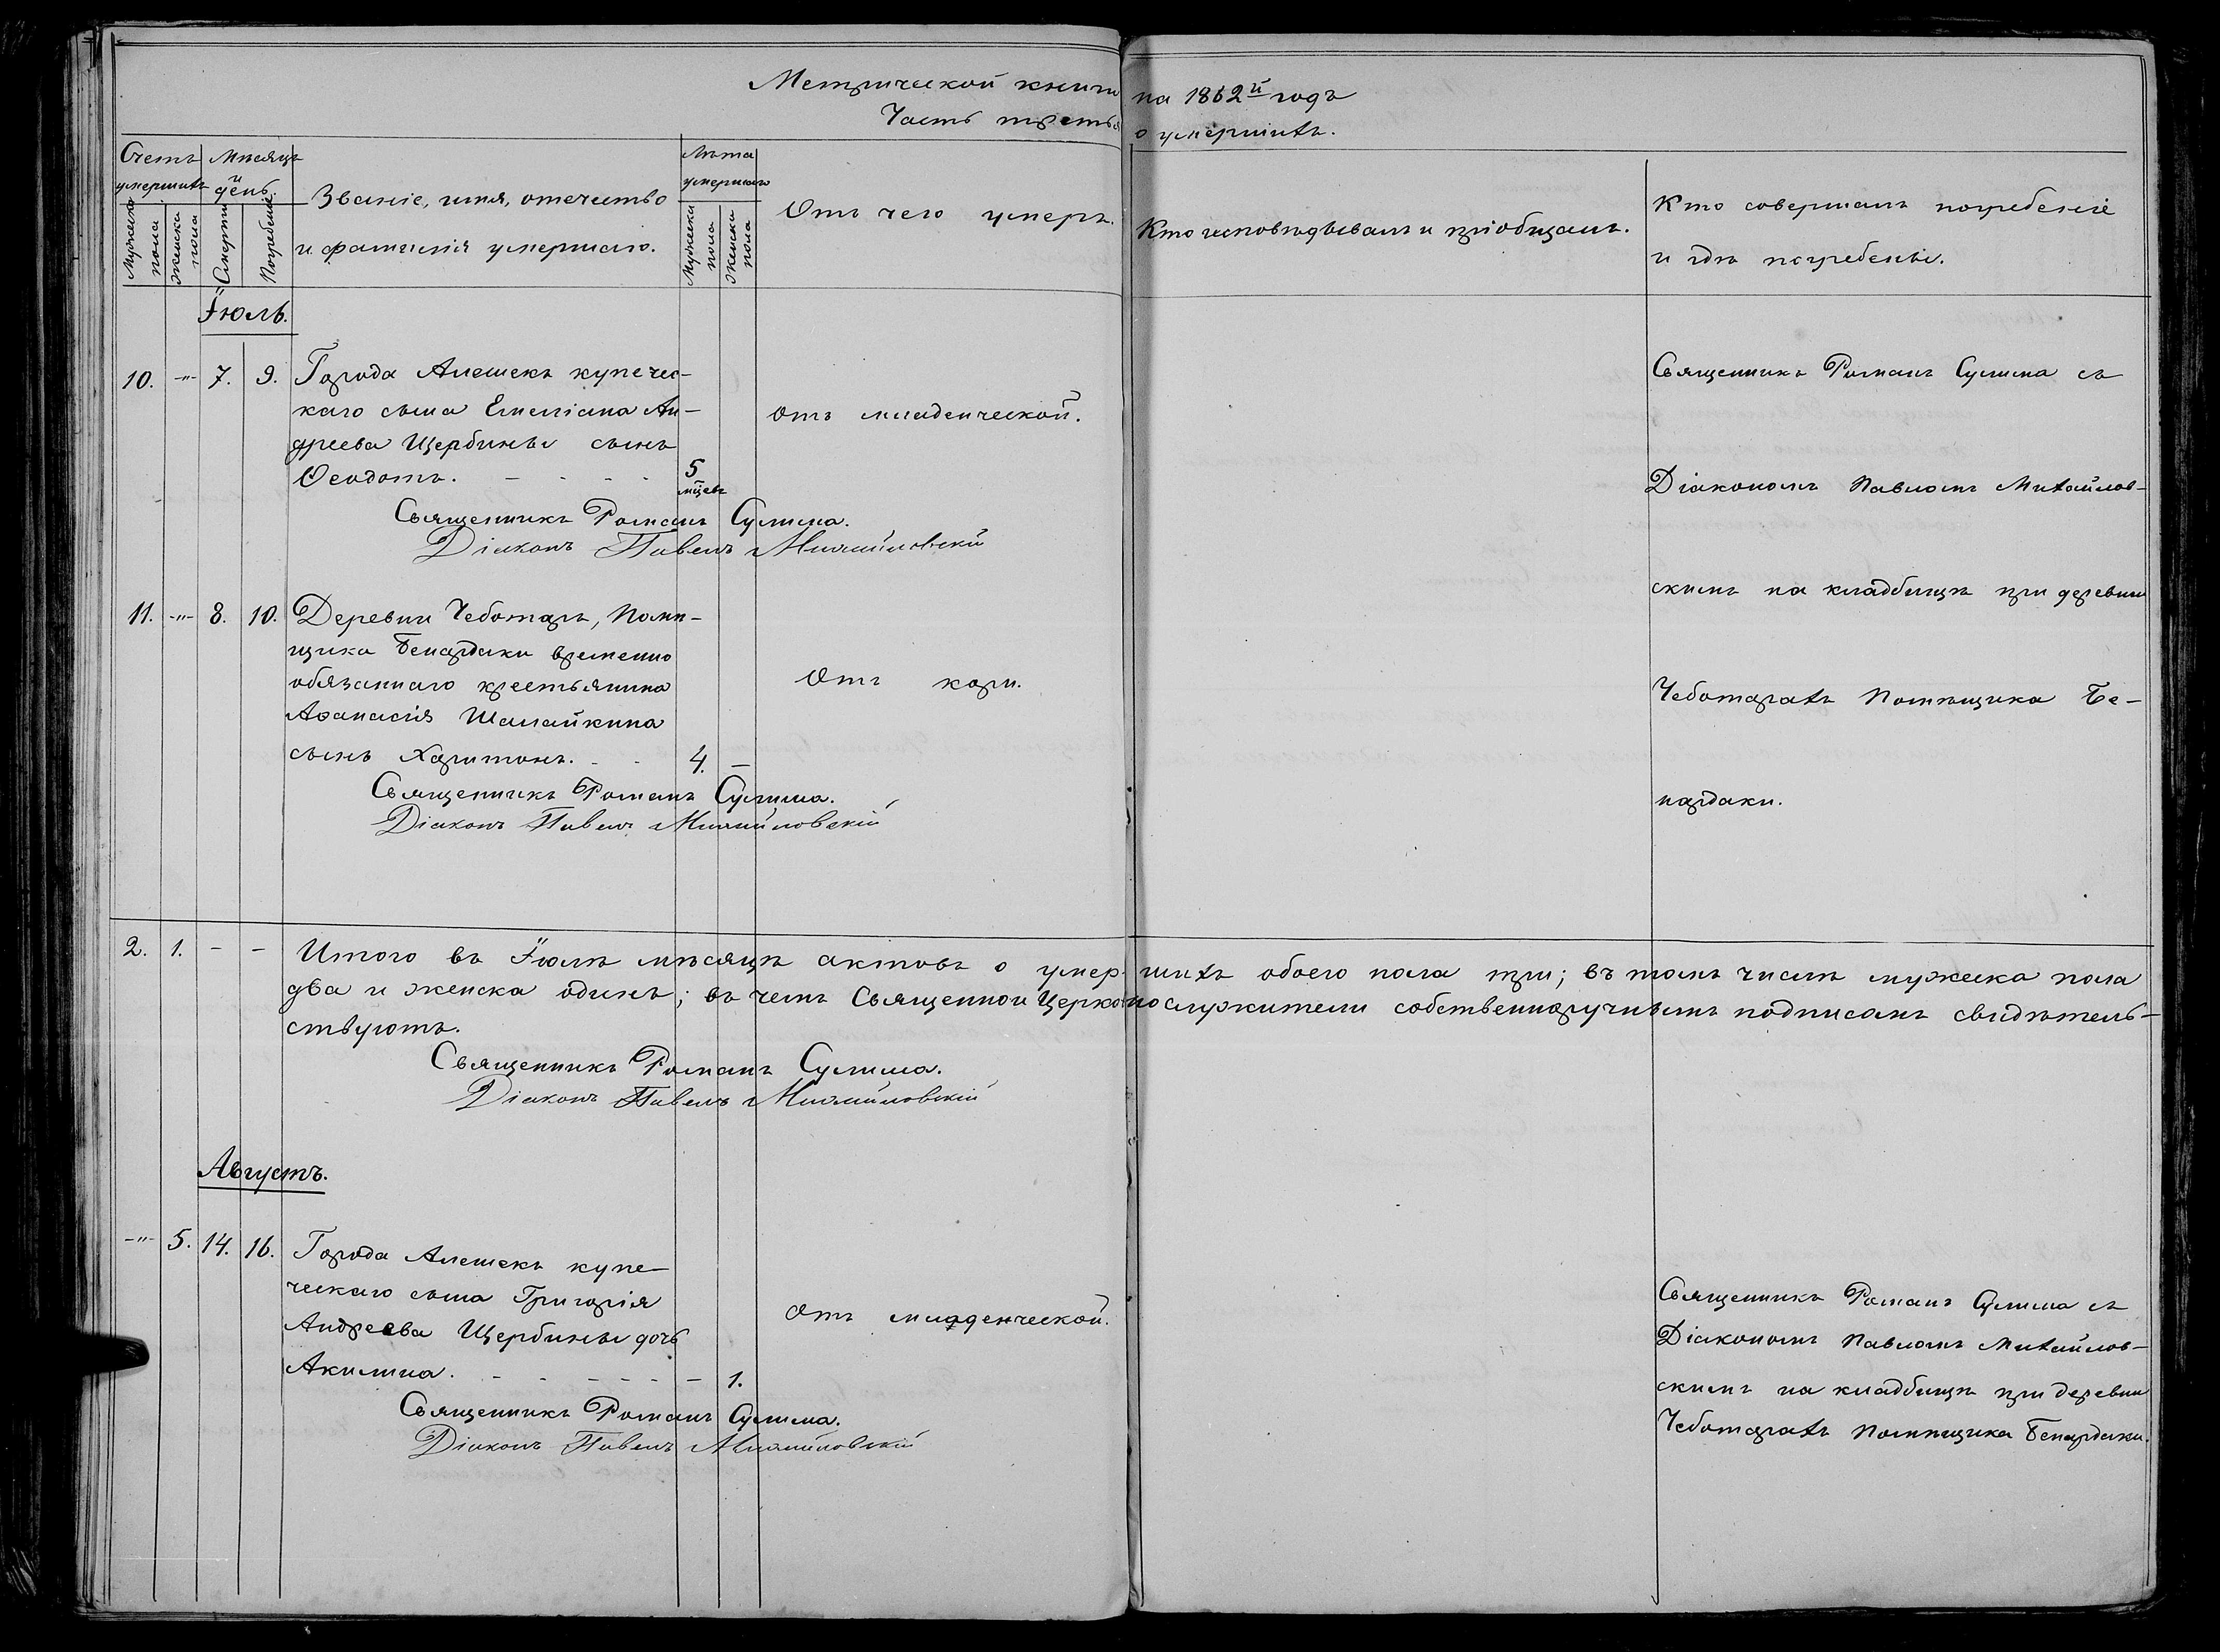 Метрической книги на 1862й годъ
Часть третья о умершихъ.
Счетъ умершихъ
Мужеска пола
Женска пола
Мѣсяцъ и день.
Смерти
Погребенія.
Званіе, имя, отечество
и фамилія умершаго.
Лѣта умершаго
Мужеска пола
Женска пола
Отъ чего умеръ.
Кто исповѣдывалъ и пріобщалъ.
Кто совершалъ погребеніе
и гдѣ погребены.
Іюль.
10. -"- 7. 9. Города Алешекъ купечес-
каго сына Емеліана Ан-
дреева Щербины сынъ
Ѳеодотъ. - - - - 5 мцевъ
отъ младенческой.
Священникъ Романъ Сулима.
Діаконъ Павелъ Михайловскій
Священникъ Романъ Сулима съ
Діакономъ Павломъ Михайлов-
скимъ на кладбищѣ при деревни
Чеботаряхъ Помѣщика Бе-
нардаки.
11. -"- 8. 10. Деревни Чеботарь, Помѣ-
щика Бенардаки временно
обязаннаго крестьянина
Аѳанасія Шалайкина
сынъ Харитонъ. - - 4. -
Отъ кори.
Священникъ Романъ Сулима.
Діаконъ Павелъ Михайловскій
2. 1. - - Итого въ Іюлѣ мѣсяцѣ актовъ о умершихъ обоего пола три; въ томъ числѣ мужеска пола
два и женска одинъ; въ чемъ Священно и Церковнослужители собственноручнымъ подписомъ свидѣтель-
ствуютъ.
Священникъ Романъ Сулима.
Діаконъ Павелъ Михайловскій
Августъ.
-"- 5. 14. 16. Города Алешекъ купе-
ческаго сына Григорія
Андреева Щербины дочь
Акилина. - - - - - - 1.
Отъ младденческой.
Священникъ Романъ Сулима.
Діаконъ Павелъ Михайловскій
Священникъ Романъ Сулима съ
Діакономъ Павломъ Михайлов-
скимъ на кладбищѣ при деревни
Чеботаряхъ Помѣщика Бенардаки.